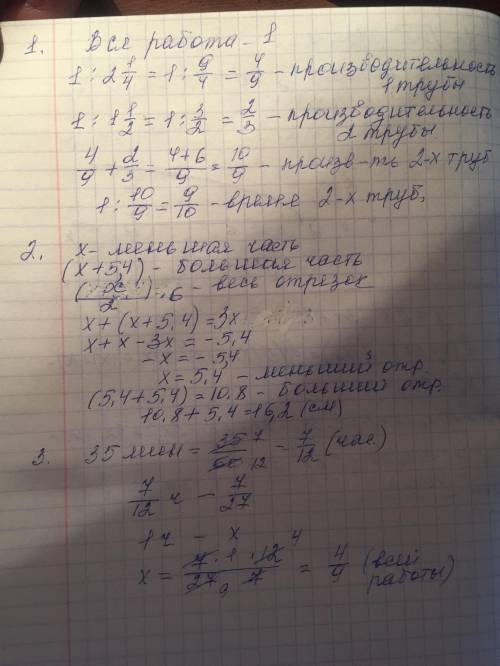 1. Вся работа - 1
1 : 2 1/4 = 1 : 9/4 = 4/9 - производительность
1 трубы
1 : 1 1/2 = 1 : 3/2 = 2/3 - производительность
2 трубы
4/9 + 2/3 = (4+6)/9 = 10/9 - произв-ть 2-х труб
1 : 10/9 = 9/10 - время 2-х труб.
2. x - меньшая часть
(x+54) - большая часть
- весь отрезок
x + (x + 5,4) = 3x
x + x - 3x = -5,4
-x = -5,4
x = 5,4 - меньший отр.
(5,4+5,4) = 10,8 - больший отр.
10,8 + 5,4 = 16,2 (см)
3. 35 мин = 35/60 = 7/12 (час.)
7/12 ч - 7/27
1ч - x
x = (7 · 1 · 12)/(27 · 7) = 4/9 (всей
работы)